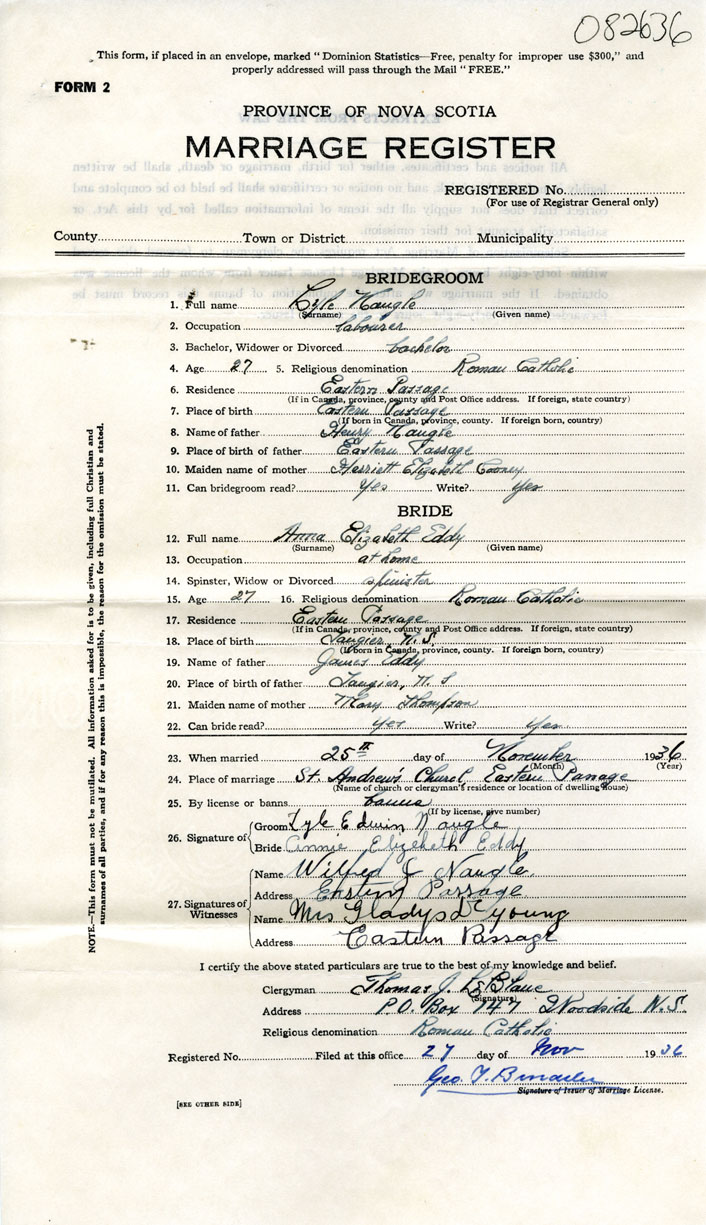 082636
This form, if placed in an envelope, marked " Dominion Statistics—Free, penalty for improper use $300," and
properly addressed will pass through the Mail " FREE."
FORM 2
PROVINCE OF NOVA SCOTIA
MARRIAGE REGISTER
REGISTERED No.
(For use of Registrar General only)
County Town or District Municipality
BRIDEGROOM
1. Full name Lyle Naugle
(Surname) (Given name)
2. Occupation labourer
3. Bachelor, Widower or Divorced bachelor
4. Age 27 5. Religious denomination Roman Catholic
6. Residence Eastern Passage
(If in Canada, province, county and Post Office address. If foreign, state country)
7. Place of birth Eastern Passage
(If born in Canada, province, county. If foreign born, country)
8. Name of father Henry Naugle
9. Place of birth of father Eastern Passage
10. Maiden name of mother Harriett Elizabeth Cooney
11. Can bridegroom read? yes Write? yes
BRIDE
12. Full name Anna Elizabeth Eddy
(Surname) (Given name)
13. Occupation at home
14. Spinster, Widow or Divorced spinster
15. Age 27 16. Religious denomination Roman Catholic
17. Residence Eastern Passage
(If in Canada, province, county and Post Office address. If foreign, state country)
18. Place of birth Tangier N. S.
(If born in Canada, province, county. If foreign born, country)
19. Name of father James Eddy
20. Place of birth of father Tangier, N. S
21. Maiden name of mother Mary Thompson
22. Can bride read? yes Write? yes
23. When married 25th day of November 1936
(Month) (Year)
24. Place of marriage St. Andrew's Church, Eastern Passage
(Name of church or clergyman's residence or location of dwelling house)
25. By license or banns banns
(If by license, give number)
26. Signature of Groom Lyle Edwin Naugle
Bride Annie Elizebeth Eddy
27. Signatures of Witnesses
Name Wilfred J Naugle
Address Eastern Passage
Name Mrs Gladys DeYoung
Address Eastern Passage
I certify the above stated particulars are true to the best of my knowledge and belief.
Clergyman Thomas J. LeBlanc
(Signature)
Address P.O. Box 747 Woodside N.S
Religious denomination Roman Catholic
Registered No. Filed at this office 27 day of Nov 1936
Geo. T.
Signature of Issuer of Marriage License.
[SEE OTHER SIDE]
NOTE.—This form must not be mutilated. All information asked for is to be given, including full Christian and
surnames of all parties, and if for any reason this is impossible, the reason for the omission must be stated.